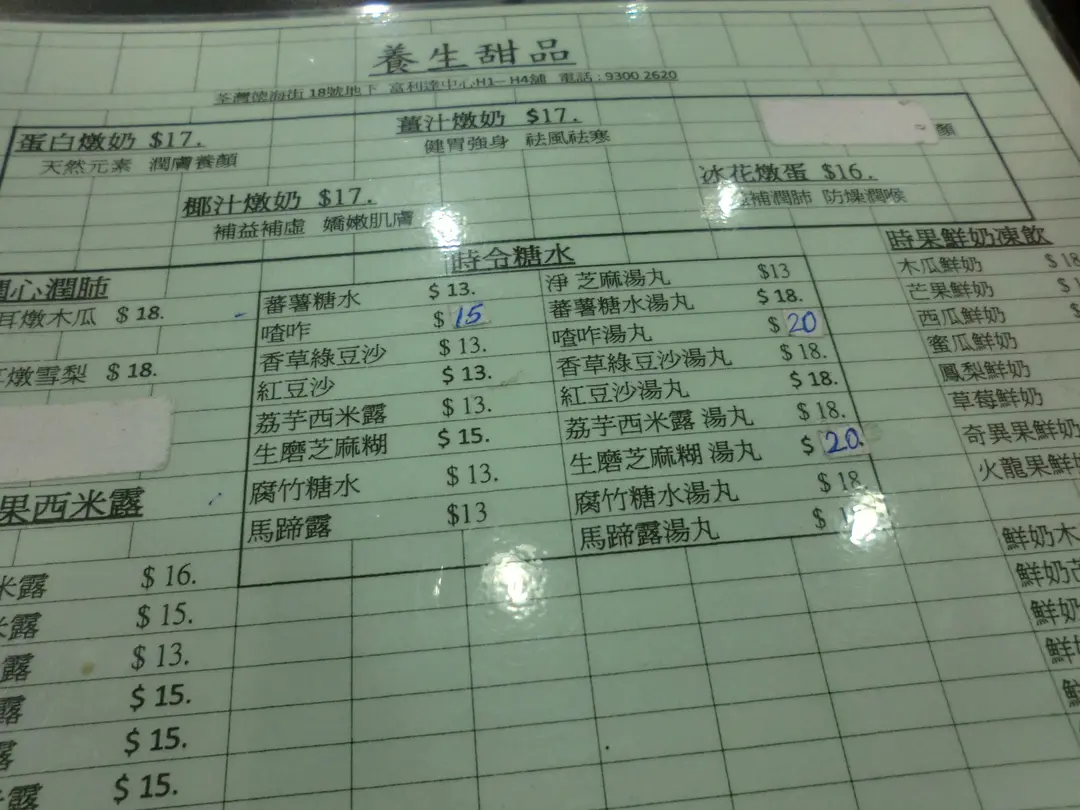 養生甜品
荃灣德海街18號地下 富利達中心H1-H4舖 電話:9300 2620
蛋白燉奶 $17.
天然元素 潤膚養顏
薑汁燉奶 $17.
健胃強身 祛風祛寒
顏
椰汁燉奶 $17.
補益補虛 嬌嫩肌膚
冰花燉蛋 $16.
補潤肺 防燥潤喉
心潤肺
耳燉木瓜 $18.
燉雪梨 $18.
果西米露
米露 $16.
露 $15.
露 $13.
露 $15.
露 $15.
露 $15.
時令糖水
蕃薯糖水 $13. 淨芝麻湯丸 $13
喳咋 $15 蕃薯糖水湯丸 $18.
香草綠豆沙 $13. 喳咋湯丸 $20
紅豆沙 $13. 香草綠豆沙湯丸 $18.
荔芋西米露 $13. 紅豆沙湯丸 $18.
生磨芝麻糊 $15. 荔芋西米露 湯丸 $18.
腐竹糖水 $13. 生磨芝麻糊 湯丸 $20.
馬蹄露 $13 腐竹糖水湯丸 $18
馬蹄露湯丸 $
時果鮮奶凍飲
木瓜鮮奶 $18
芒果鮮奶 $
西瓜鮮奶 $
蜜瓜鮮奶
鳳梨鮮奶
草莓鮮奶
奇異果鮮奶
火龍果鮮奶
鮮奶木
鮮奶芒
鮮奶
鮮
鮮